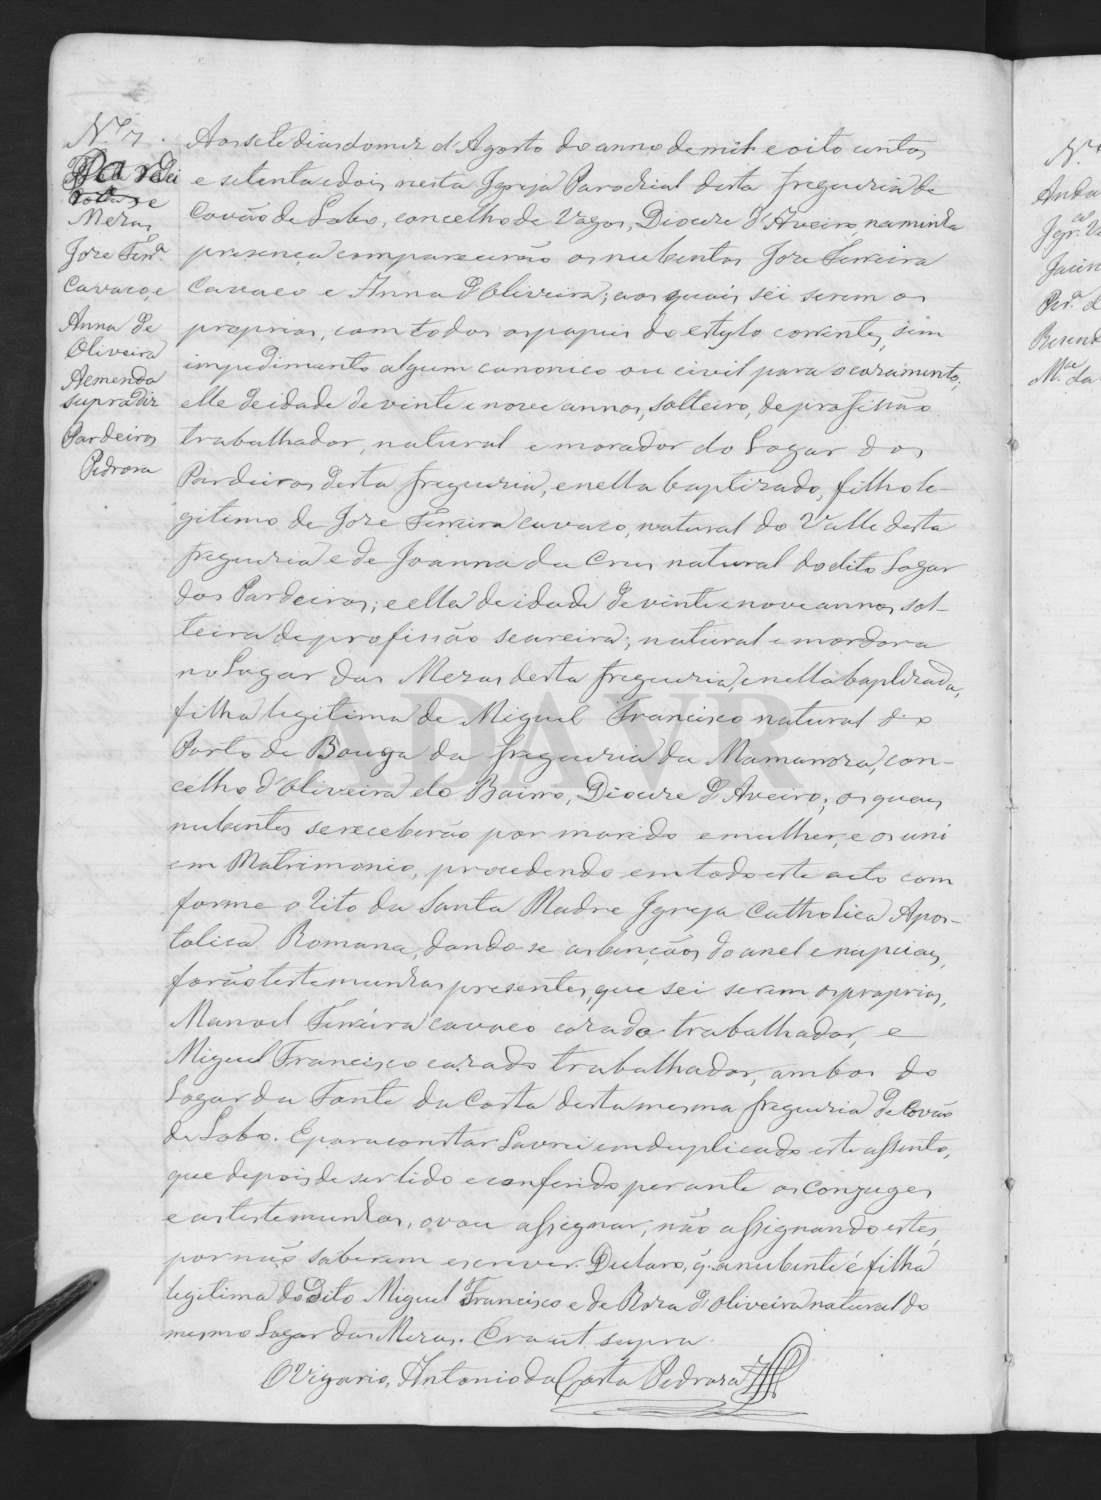 Nº 7.
Pardei
ros e
Mezas
Joze Ferrª
Cavaco, e
Anna de
Oliveira
Aemenda
supra diz
Pardeiros
Pedroza
Aos sete dias do mez d'Agosto do anno de mil e oito centos
e setenta e dois nesta Igreja Parochial desta freguezia de
Covão de Lobo, concelho de Vagos, Diocese d'Aveiro, na minha
presença comparecerão os nubentes Joze Ferreira
Cavaco e Anna d'Oliveira; aos quais sei serem os
proprios, com todos os papeis do estylo correntes, sem
impedimento algum canonico ou civil para o cazamento;
elle de idade de vinte e nove annos, solteiro, de profissão
trabalhador, natural e morador do Logar dos
Pardeiros desta freguezia, e nella baptizado, filho le-
gitimo de Joze Ferreira cavaco, natural do Valle desta
freguezia e de Joanna da Cruz natural do dito Logar
dos Pardeiros; e ella de idade de vinte e nove annos sol-
teira de profissão seareira; natural e mordora
no Lugar das Mezas desta freguezia, e nella baptizada,
filha legitima de Miguel Francisco natural do
Porto de Bouga da freguezia da Mamarroza, con-
celho d'Oliveira do Bairro, Diocese d'Aveiro; os quaes
nubentes se receberão por marido e mulher, e os uni
em Matrimonio, procedendo em todo este acto com
forme o Rito da Santa Madre Igreja Catholica Apos-
tolica Romana, dando-se as bençãos do anel e nupciaes,
forão testemunhas presentes, que sei serem os proprios,
Manoel Ferreira cavaco cazado trabalhador, e
Miguel Francisco cazado trabalhador, ambos do
Logar da Fonte da Costa desta mesma freguezia de Covão
de Lobo. E para constar Lavrei em duplicado este assento,
que depois de ser lido e conferido perante os conjuges
e as testemunhas, o vou assignar, não assignando estes,
por não saberem escrever. Declaro, q. a nubente é filha
legitima do Dito Miguel Francisco e de Roza d'Oliveira natural do
mesmo Logar das Mezas. Era ut supra.
O Vigario, Antonio da Costa Pedroza
ADAVR